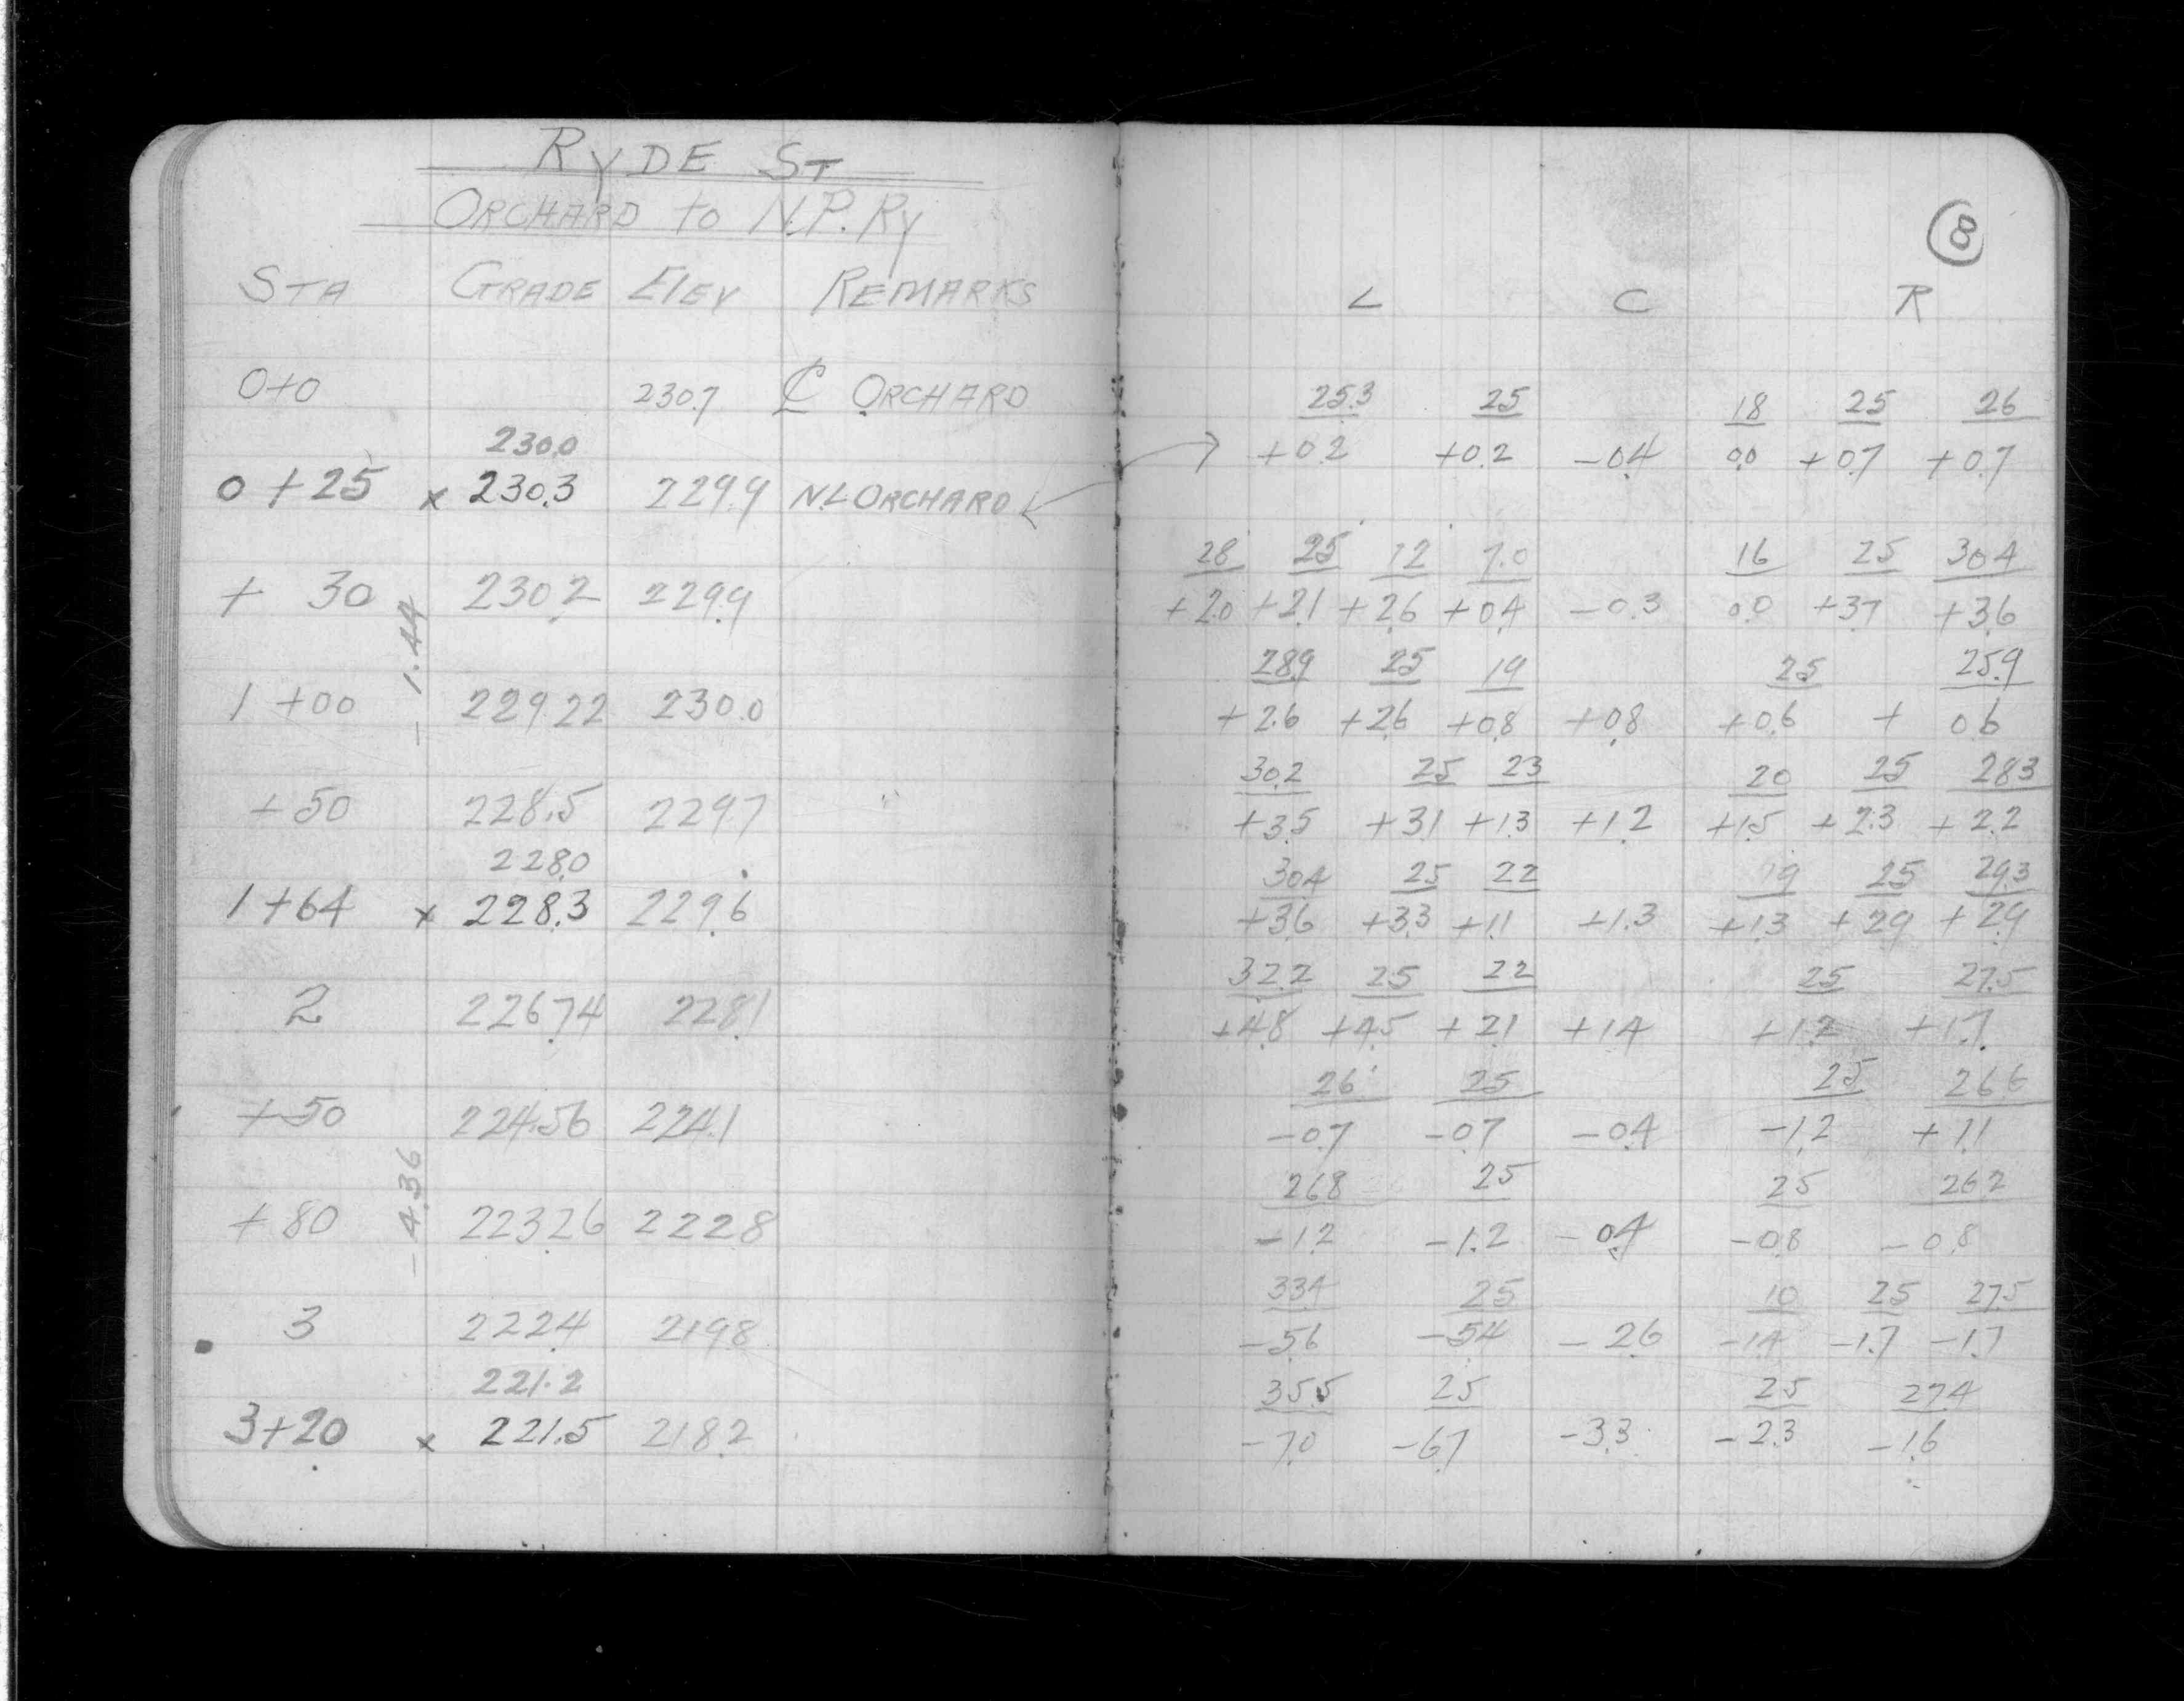 RYDE ST
ORCHARD to N.P.Ry
STA GRADE ELEV REMARKS
0+0 230.7 ℄ ORCHARD
230.0
0+25 x 230.3 229.9 N.L ORCHARD
+ 30 230.2 229.9
- 1.44
1+00 229.22 230.0
+50 228.5 229.7
228.0
1+64 x 228.3 229.6
2 226.74 228.1
+50 224.56 224.1
- 4.36
+80 223.26 222.8
3 222.4 219.8
221.2
3+20 x 221.5 218.2
8
L C R
25.3 25 18 25 26
+0.2 +0.2 -0.4 0.0 +0.7 +0.7
28 25 12 7.0 16 25 30.4
+2.0 +2.1 +2.6 +0.4 -0.3 0.0 +3.7 +3.6
28.9 25 19 25 25.9
+2.6 +2.6 +0.8 +0.8 +0.6 + 0.6
30.2 25 23 20 25 28.3
+3.5 +3.1 +1.3 +1.2 +1.5 +2.3 +2.2
30.4 25 22 19 25 29.3
+3.6 +3.3 +1.1 +1.3 +1.3 +2.9 +2.9
32.2 25 22 25 27.5
+4.8 +4.5 +2.1 +1.4 +1.2 +1.7
26 25 25 26.6
-0.7 -0.7 -0.4 -1.2 +1.1
26.8 25 25 26.2
-1.2 -1.2 -0.4 -0.8 -0.8
33.4 25 10 25 27.5
-5.6 -5.4 -2.6 -1.4 -1.7 -1.7
35.5 25 25 27.4
-7.0 -6.7 -3.3 -2.3 -1.6